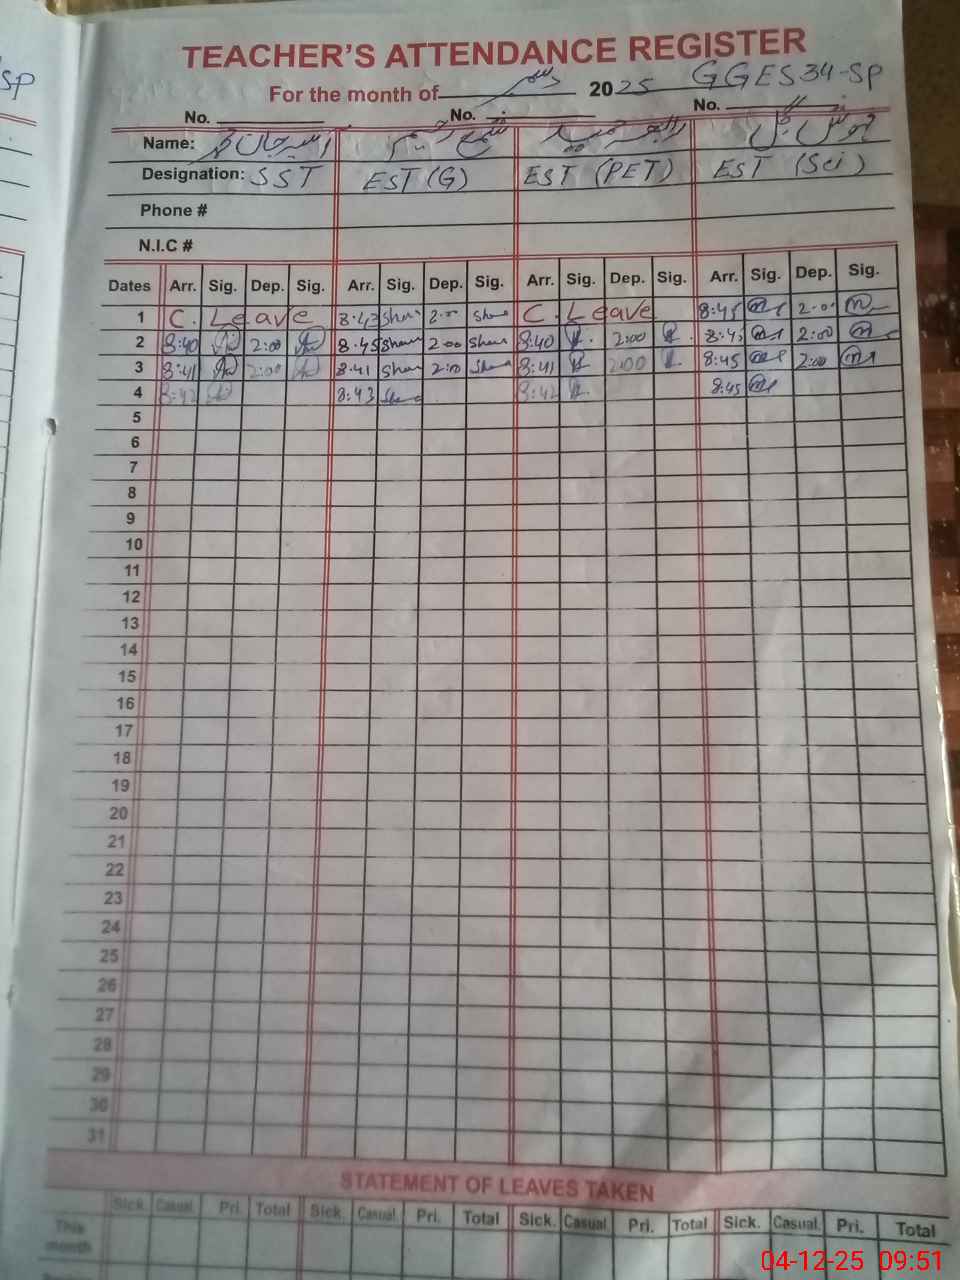 TEACHER'S ATTENDANCE REGISTER
For the month of دسمبر 2025 GGES 34-SP
No. No. No.
Name:
Designation: SST EST (G) EST (PET) EST (Sci)
Phone #
N.I.C #
Dates Arr. Sig. Dep. Sig. Arr. Sig. Dep. Sig. Arr. Sig. Dep. Sig. Arr. Sig. Dep. Sig.
1 C. Leave 8:43 2:00 C. Leave 8:45 2:00
2 8:40 2:00 8:45 2:00 8:40 2:00 8:45 2:00
3 8:41 2:00 8:41 2:00 8:41 2:00 8:45 2:00
4 8:42 8:43 8:42 8:45
5
6
7
8
9
10
11
12
13
14
15
16
17
18
19
20
21
22
23
24
25
26
27
28
29
30
31
STATEMENT OF LEAVES TAKEN
Sick. Casual. Pri. Total Sick. Casual. Pri. Total Sick. Casual. Pri. Total Sick. Casual. Pri. Total
This month
04-12-25 09:51